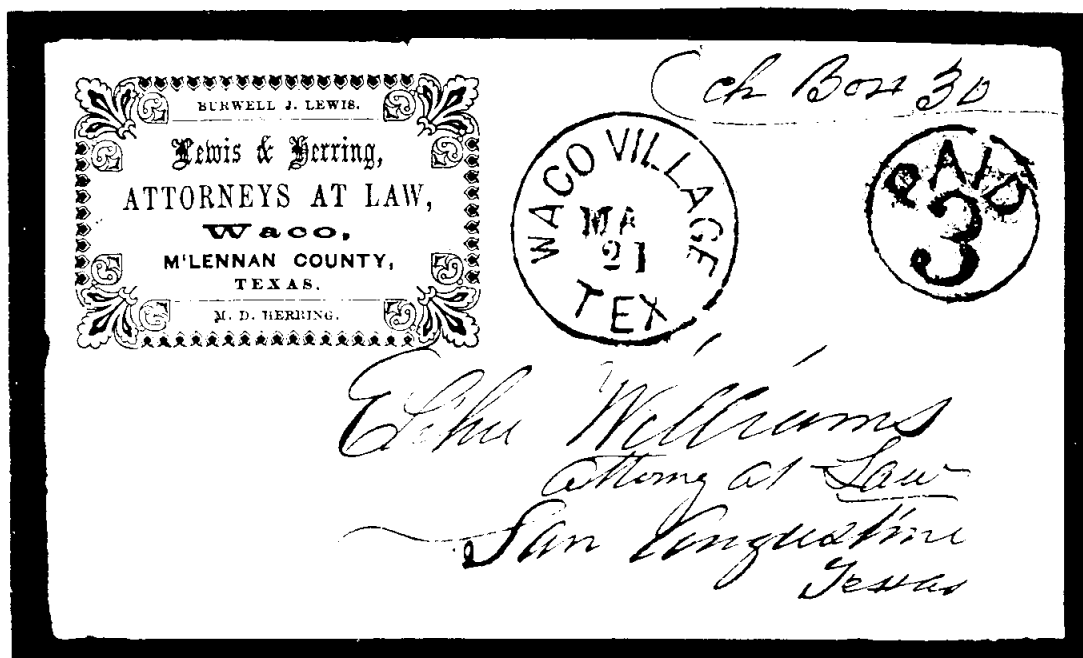 BURWELL J. LEWIS.
Lewis & Herring,
ATTORNEYS AT LAW,
Waco,
M'LENNAN COUNTY,
TEXAS.
M. D. HERRING.
WACO VILLAGE
MA
21
TEX
ch Box 30
PAID
3
Elihu Williams
attorney at Law
San Augustine
Texas